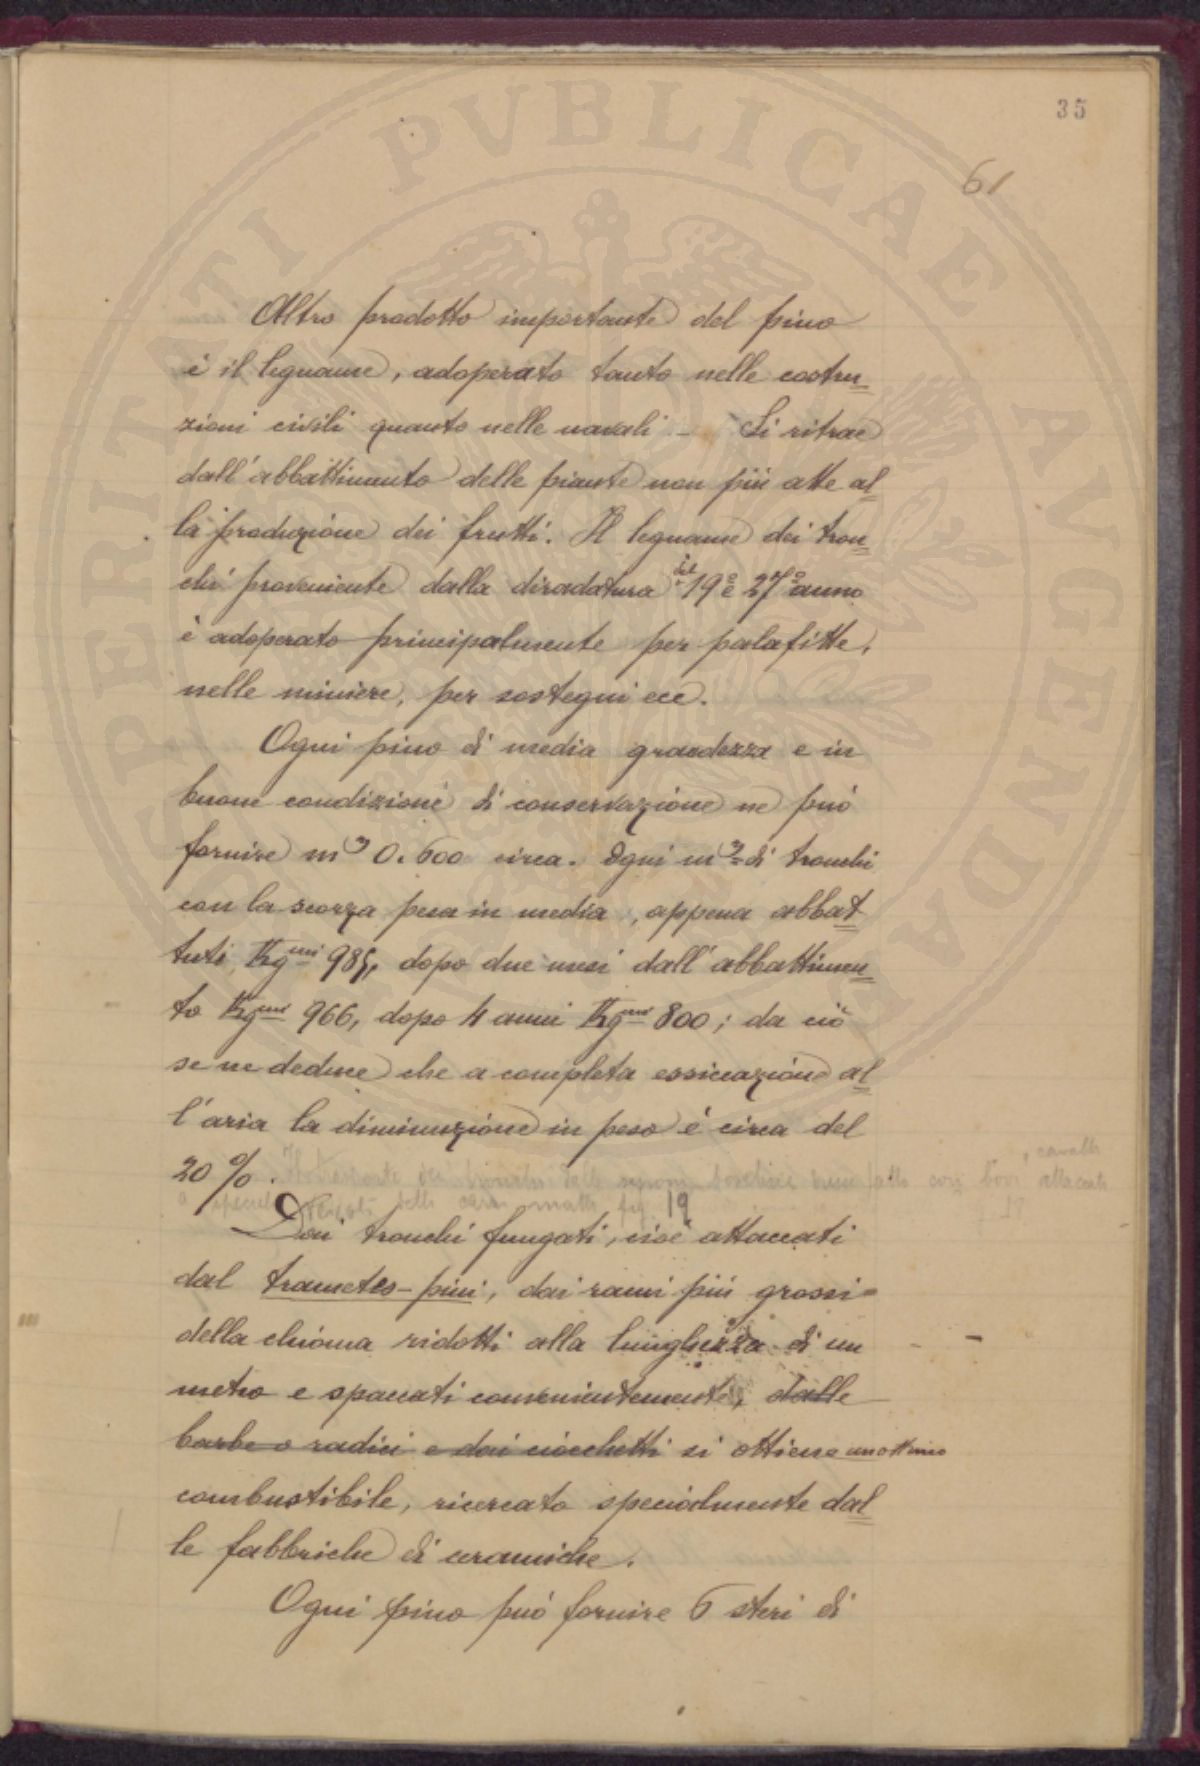 35
61
Altro prodotto importante del pino
è il legname, adoperato tanto nelle costru=
zioni civili quanto nelle navali – Si ritrae
dall'abbattimento delle piante non più atte al=
la produzione dei frutti. Il legname dei tron=
chi proveniente dalla diradatura del 19° e 27° anno
è adoperato principalmente per palafitte,
nelle miniere, per sostegni ecc.
Ogni pino di media grandezza e in
buone condizioni di conservazione ne può
fornire m³ 0.600 circa. Ogni m³ di tronchi
con la scorza pesa in media, appena abbat=
tuti Kgmi 985, dopo due mesi dall'abbattimen=
to Kgmi 966, dopo 4 anni Kgmi 800; da ciò
se ne deduce che a completa essiccazione al=
l'aria la diminuzione in peso è circa del
20 %. Il trasporto dei tronchi dalle viene fatto con bovi attaccati
, cavalli
a speciali detti carri matti fig. 19
Dai tronchi fungati, cioè attaccati
dal trametes-pini, dai rami più grossi
della chioma ridotti alla lunghezza di un
metro e spaccati convenientemente, dalle
barbe o radici e dai ciocchetti si ottiene un ottimo
combustibile, ricercato specialmente dal=
le fabbriche di ceramiche.
Ogni pino può fornire 6 steri di
PROSPERITATI PVBLICAE AVGENDAE